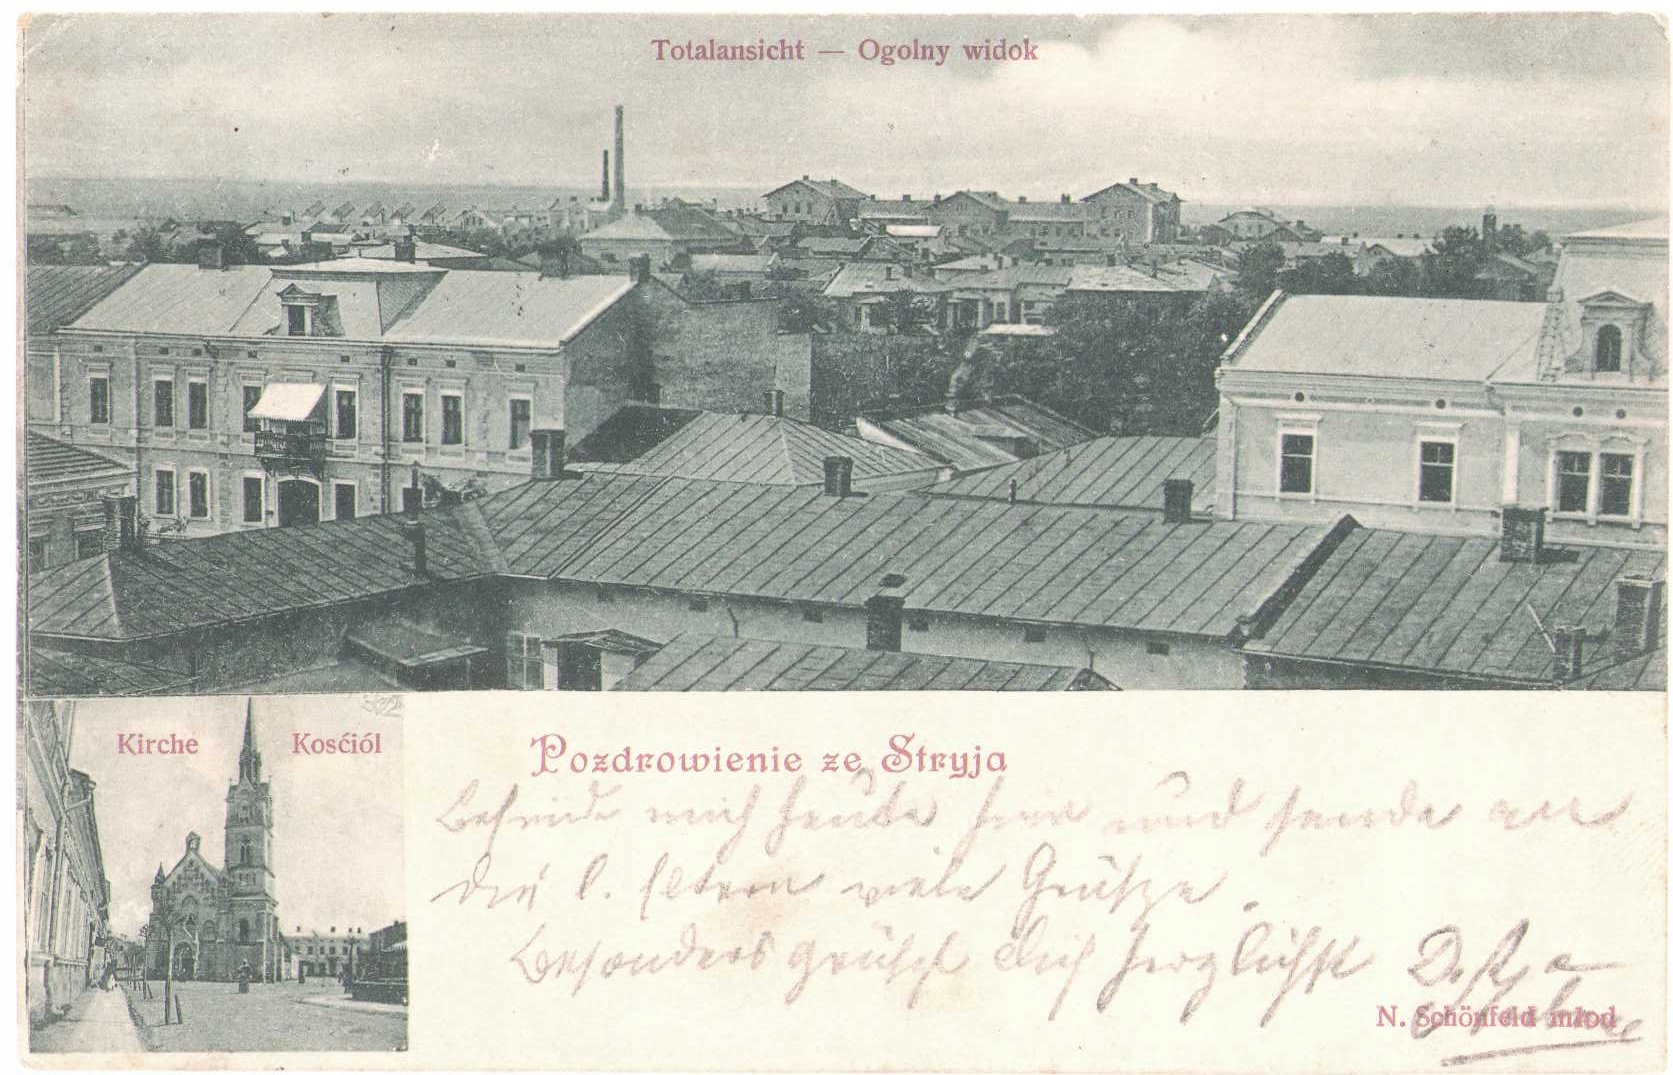 Totalansicht — Ogolny widok
Kirche Kosćiól
Pozdrowienie ze Stryja
Befinde mich heute hier und sende an
die l. Eltern viele Grüsse.
Besonders grüsst Dich herzlichst
N. Schönfeld młod